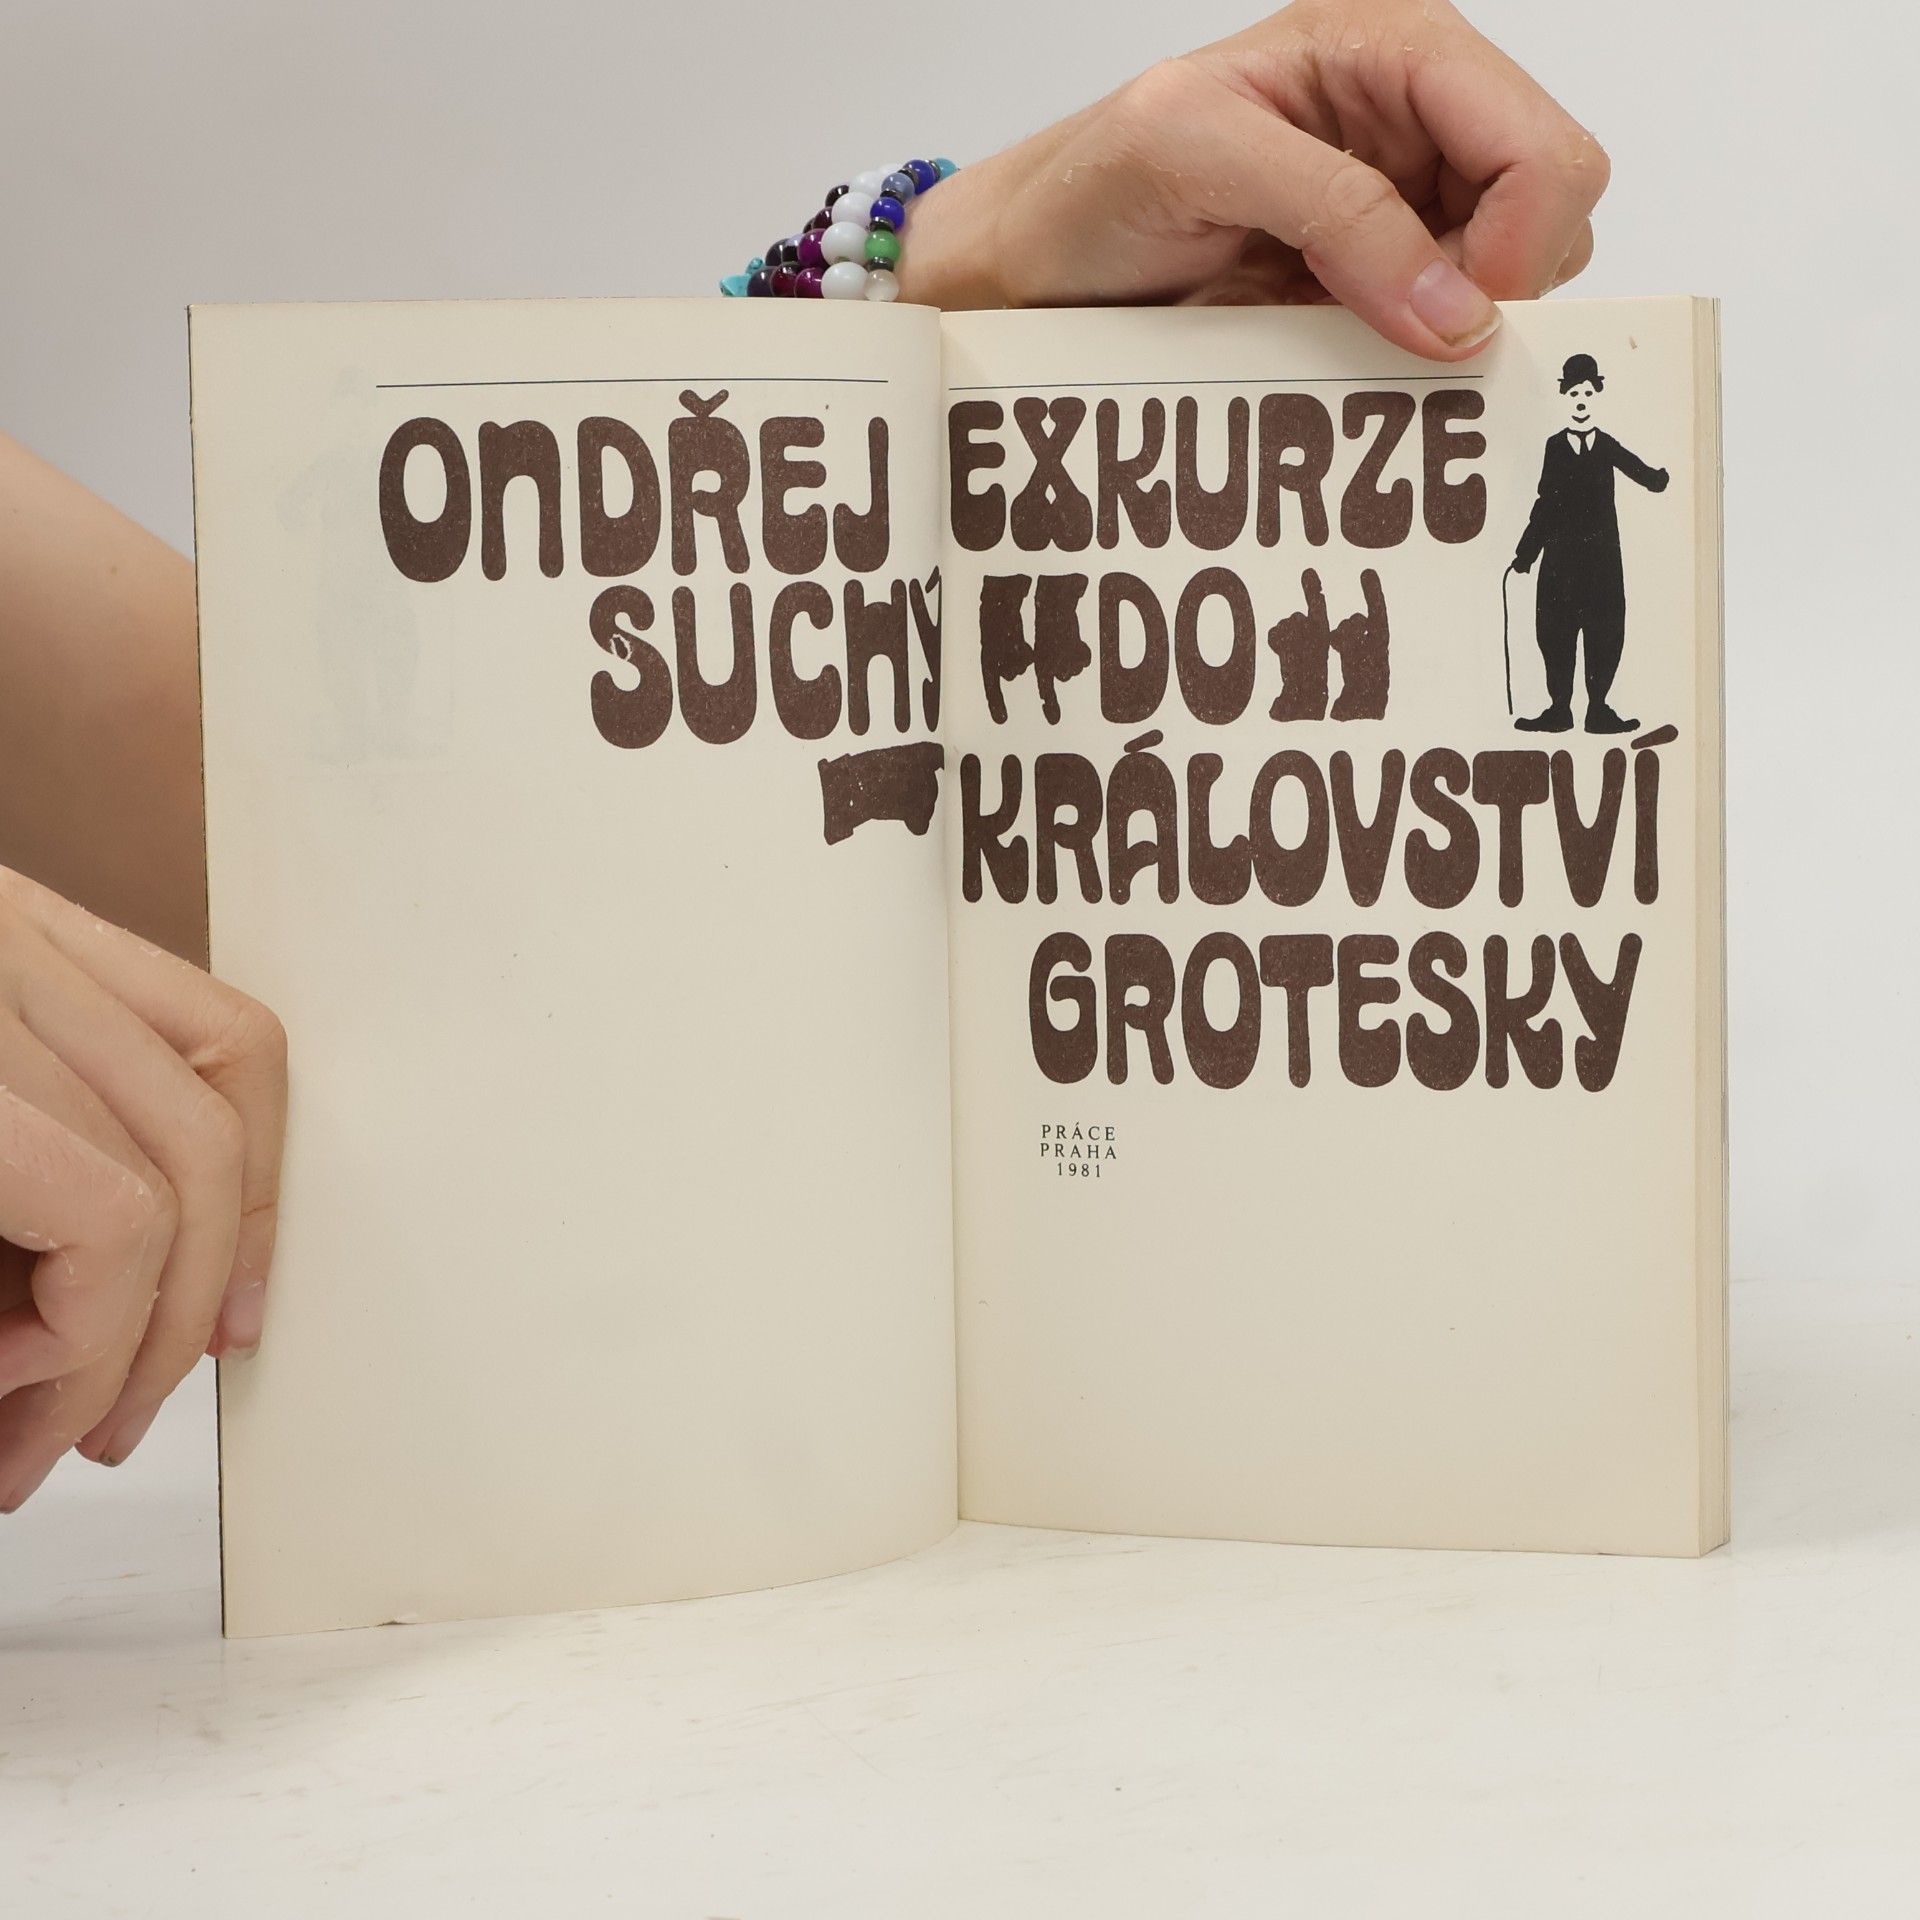 ONDŘEJ
SUCHÝ
EXKURZE
DO
KRÁLOVSTVÍ
GROTESKY
PRÁCE
PRAHA
1981